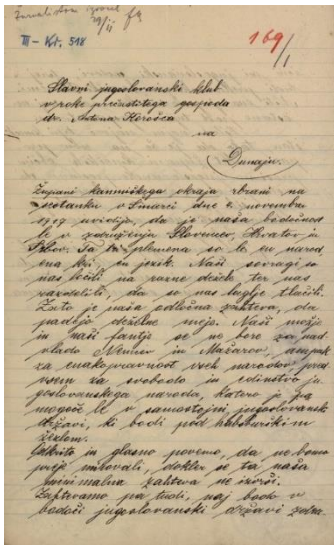 III - Kt. 518
169/1
Slavni jugoslovanski klub
v roke prečastitega gospoda
dr. Antona Korošca
na
Dunaju.
Župani kamniškega okraja zbrani na
sestanku v Šmarci dne 2. novembra
1917 uvidijo, da je naša bodočnost
le v združenju Slovencev, Hrvatov in
Srbov. Ta plemena so le en narod
ene krvi in jezika. Naši sovragi so
nas ločili na razne dežele ter nas
razdelili, da so nas lažje tlačili.
Zato je naša odločna zahteva, da
padejo deželne meje. Naši možje
in naši fantje se ne bore za nad-
vlado Nemcev in Mažarov, ampak
za enakopravnost vseh narodov pred
vsem za svobodo in edinstvo ju
goslovanskega naroda, katero je pa
mogoče le v samostojni jugoslovansk
državi, ki bodi pod habsburškim
žezlom.
Odkrito in glasno povemo, da ne bomo
preje mirovali, dokler se ta naša
minimalna zahteva ne izvrši.
Zahtevamo pa tudi, naj bodo v
bodoči jugoslovanski državi